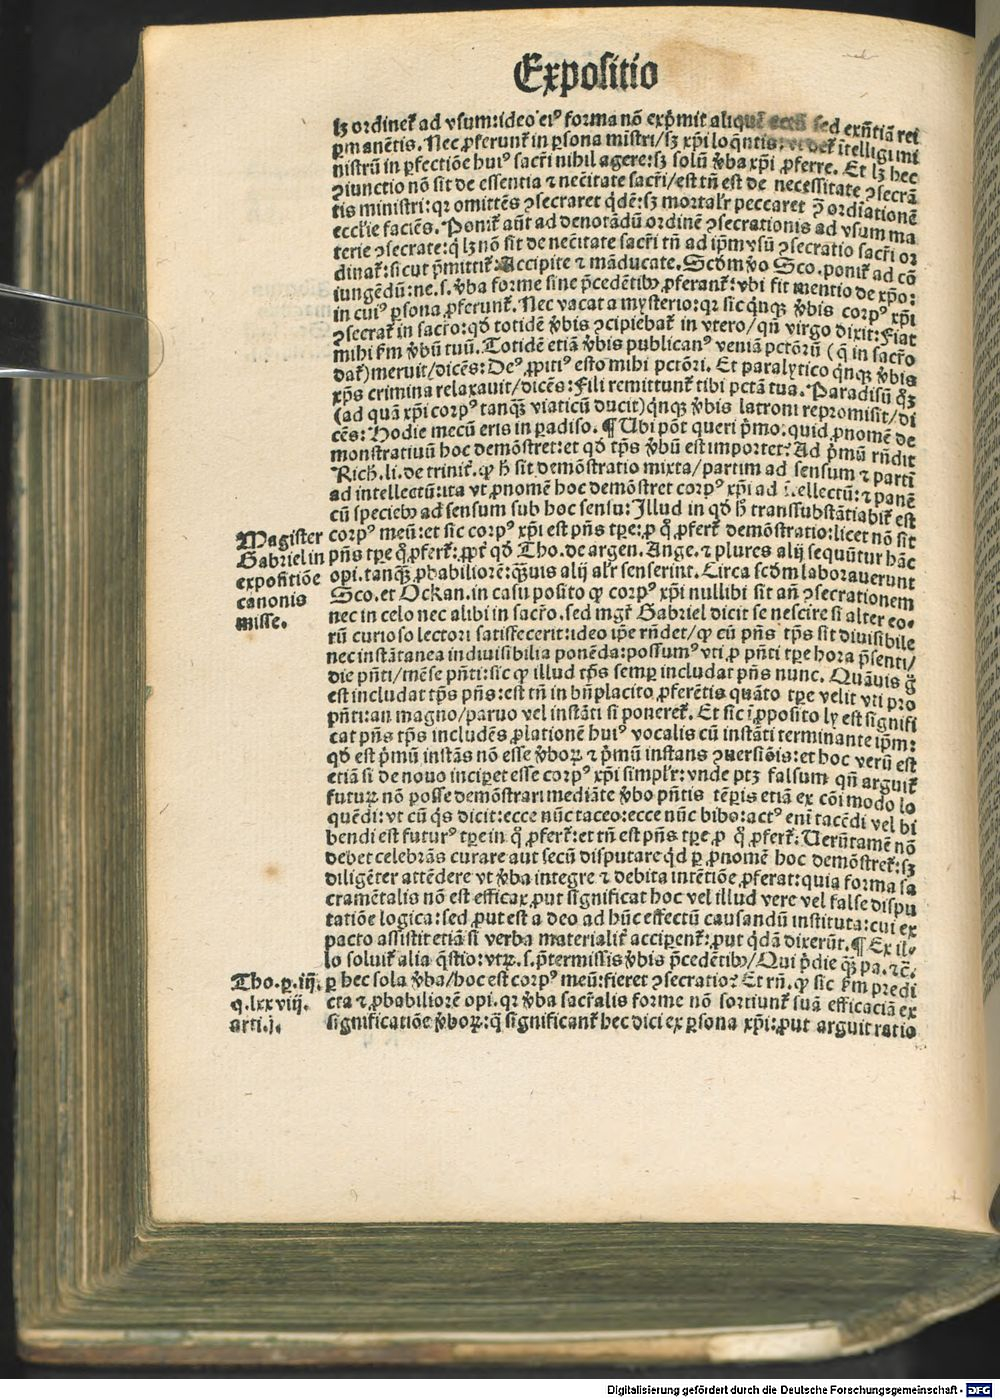 Expositio
lꝫ ordinet᷑ ad vsum:ideo eiꝰ forma nō exp̄mit aliquē sed exn̄tiā rei
ꝑmanētis. Nec ꝓferunt᷑ in ꝑsona mīstri/sꝫ xp̄i loq̄ntis: vt det᷑ ītelligi mi
nistrū in ꝑfectiōe huiꝰ sacr̄i nihil agere:sꝫ solū v̄ba xp̄i ꝓferre. Et lꝫ hec
ꝯiunctio nō sit de essentia ⁊ nec̄itate sacr̄i/est tn̄ est de necessitate ꝯsecrā
tis ministri:qꝛ omittēs ꝯsecraret qdē:sꝫ mortal'r peccaret ordīationē
eccl'ie faciēs. Ponit᷑ aūt ad denotādū ordinē ꝯsecrationis ad vsum ma
terie ꝯsecrate:q̄ lꝫ nō sit de nec̄itate sacr̄i tn̄ ad ip̄m vsū ꝯsecratio sacr̄i or
dinat᷑:sicut p̄mittit᷑:Accipite ⁊ māducate. Scd̄m v̄o Sco. ponit᷑ ad cō
iungēdū:ne.s. v̄ba forme sine p̄cedētibꝰ ꝓferant᷑:vbi fit mentio de xp̄o:
in cuiꝰ ꝑsona ꝓferunt᷑. Nec vacat a mysterio:qꝛ sic qnqꝫ v̄bis corpꝰ xp̄i
ꝯsecrat᷑ in sacr̄o:qd̄ totidē v̄bis ꝯcipiebat᷑ in vtero/qn̄ virgo dixit:Fiat
mihi km̄ v̄bū tuū. Totidē etiā v̄bis publicanꝰ veniā pctōrū (q̄ in sacr̄o
dat᷑) meruit/dicēs:Deꝰ ꝓpitiꝰ esto mihi pctōri. Et paralytico qnqꝫ v̄bis
xp̄s crimina relaxauit/dicēs:Fili remittunt᷑ tibi pctā tua. Paradisū qꝫ
(ad quā xp̄i corpꝰ tanqꝫ viaticū ducit) qnqꝫ v̄bis latroni repromisit/di
cēs:Hodie mecū eris in ꝑadiso. ¶ Ubi pōt queri p̄mo:quid ꝓnomē de
monstratiuū hoc demōstret:et qd̄ tp̄s v̄bū est importet? Ad p̄mū rn̄dit
Rich. li. de trinit᷑. ꝙ h̄ sit demōstratio mixta/partim ad sensum ⁊ parti
ad intellectū:ita vt ꝓnomē hoc demōstret corpꝰ xp̄i ad intellectū:⁊ panē
cū speciebꝰ ad sensum sub hoc sensu:Illud in qd̄ h̄ transsubstātiabit᷑ est
corpꝰ meū:et sic corpꝰ xp̄i est pn̄s tꝑe:ꝑ q̄ ꝓfert᷑ demōstratio:licet nō sit
pn̄s tꝑe q̄ ꝓfert᷑:ꝓpt᷑ qd̄ Tho. de argen. Ange. ⁊ plures alij sequūtur hāc
opi. tanqꝫ ꝓbabiliorē:qꝫuis alij al'r senserint. Circa scd̄m laborauerunt
Sco. et Ockan. in casu posito ꝙ corpꝰ xp̄i nullibi sit an̄ ꝯsecrationem
nec in celo nec alibi in sacr̄o. sed mgr̄ Gabriel dicit se nescire si alter eo-
rū curioso lectori satisfecerit:ideo ip̄e rn̄det/ꝙ cū pn̄s tp̄s sit diuisibile
nec instātanea indiuisibilia ponēda:possumꝰ vti ꝓ pn̄ti tꝑe hora p̄senti/
die pn̄ti/mēse pn̄ti:sic ꝙ illud tp̄s semꝑ includat pn̄s nunc. Quāuis g̊
est includat tp̄s pn̄s:est tn̄ in bn̄placito ꝓferētis quāto tꝑe velit vti pro
pn̄ti:an magno/paruo vel instāti si poneret᷑. Et sic ī ꝓposito ly est signifi
cat pn̄s tp̄s includēs ꝓlationē huiꝰ vocalis cū instāti terminante ip̄m:
qd̄ est p̄mū instās nō esse v̄boꝝ ⁊ p̄mū instans ꝯuersiōis:et hoc verū est
etiā si de nouo inciꝑet esse corpꝰ xp̄i simpl'r:vnde ptꝫ falsum qn̄ arguit᷑
futuꝝ nō posse demōstrari mediāte v̄bo pn̄tis tēꝑis etiā ex cōi modo lo
quēdi:vt cū qs dicit:ecce nūc taceo:ecce nūc bibo:actꝰ eni tacēdi vel bi
bendi est futurꝰ tꝑe in q̄ ꝓfert᷑:et tn̄ est pn̄s tꝑe ꝓ q̄ ꝓfert᷑. Uerūtamē nō
debet celebrās curare aut secū disputare qd ꝑ ꝓnomē hoc demōstret᷑:sꝫ
diligēter attēdere vt v̄ba integre ⁊ debita intētiōe ꝓferat:quia forma sa
cramētalis nō est efficax ꝓut significat hoc vel illud vere vel false dispu
tatiōe logica:sed ꝓut est a deo ad hūc effectū causandū instituta:cui ex
pacto assistit etiā si verba materialit᷑ acciperent᷑:ꝓut qdā dixerūt. ¶ Ex il-
lo soluit᷑ alia q̄stio:vtꝝ.s. p̄termissis v̄bis p̄cedētibꝰ/Qui p̄die qꝫ pa. ⁊c̄.
ꝑ hec sola v̄ba/hoc est corpꝰ meū:fieret ꝯsecratio? Et rn̄. ꝙ sic km̄ predi
cta ⁊ ꝓbabiliorē opi. qꝛ v̄ba sacr̄alis forme nō sortiunt᷑ suā efficaciā ex
significatiōe v̄boꝝ:q̄ significant᷑ hec dici ex ꝑsona xp̄i:ꝓut arguit ratio
Magister
Gabriel in
expositiōe
canonis
misse.
Tho. p. iij.
q. lxxviij.
arti. j.
Digitalisierung gefördert durch die Deutsche Forschungsgemeinschaft - DFG